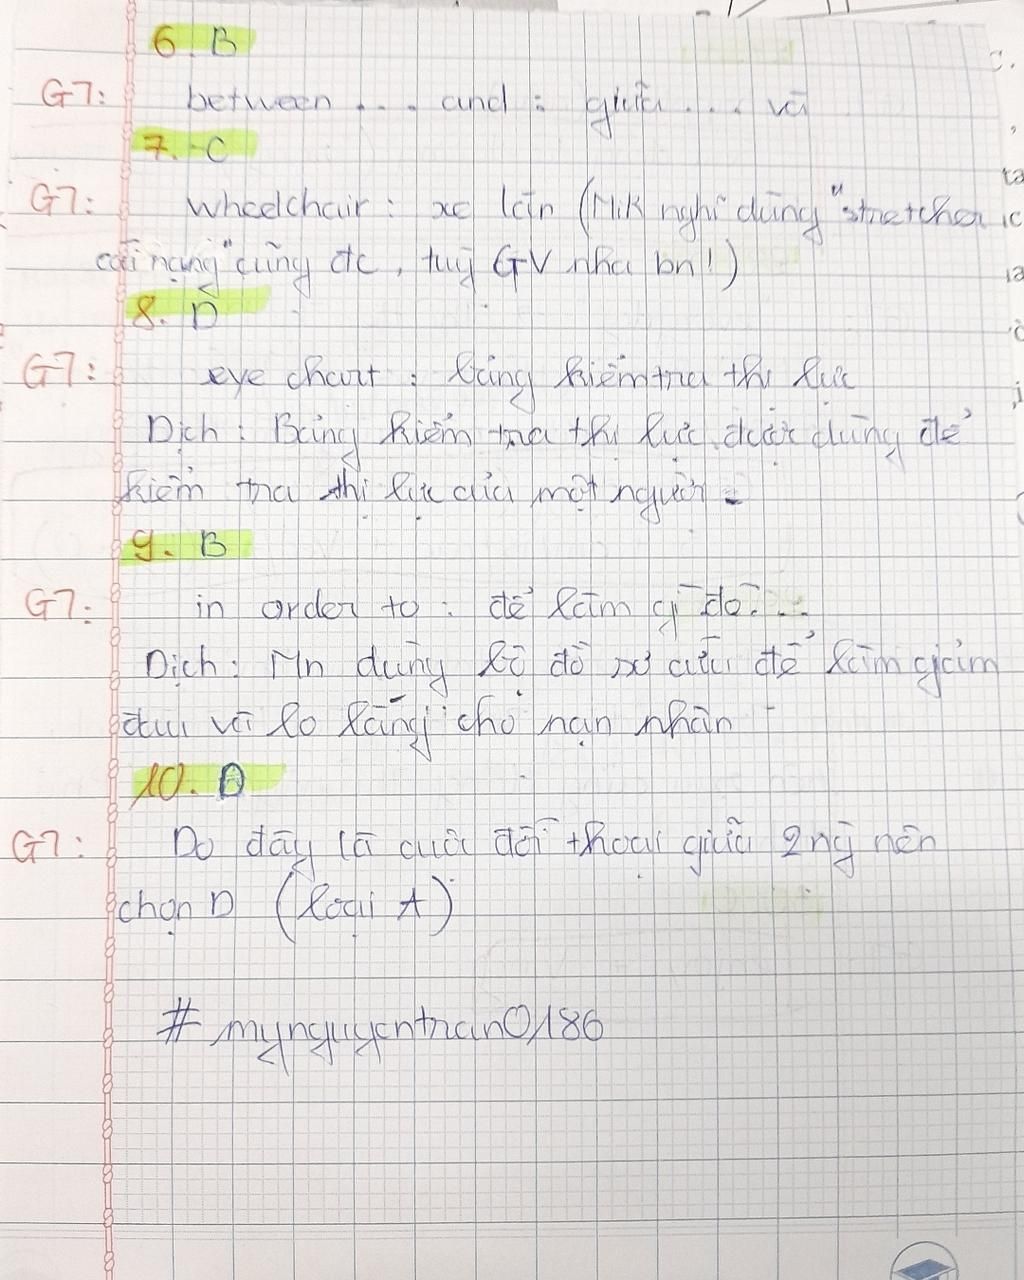 6. B
GT: between ... and : giữa ... và
7. C
GT: wheelchair: xe lăn (Mik nghĩ dùng "stretcher
cái nạng" cũng đc, tuỳ GV nha bn!)
8. D
GT: eye chart : bảng kiểm tra thị lực
Dịch : Bảng kiểm tra thị lực được dùng để
kiểm tra thị lực của một người.
9. B
GT: in order to : để làm gì đó...
Dịch : Mn dùng bộ đồ sơ cứu để làm giảm
đau và lo lắng cho nạn nhân
10. D
GT: Do đây là cuộc đối thoại giữa 2 ng nên
chọn D (loại A)
# mynguyentran0186